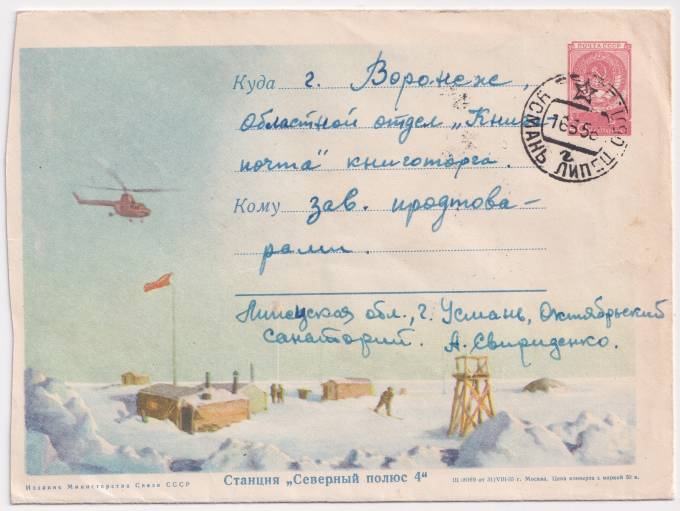 ПОЧТА СССР
Куда г. Воронеж,
областной отдел „Книга-
почта" книготорга.
Кому зав. продтова-
рами.
Липецкая обл., г. Усмань, Октябрьский
санаторий. А. Свириденко.
УСМАНЬ ЛИПЕЦ
Станция „Северный полюс 4"
Издание Министерства Связи СССР
г. Москва. Цена конверта с маркой 50 к.